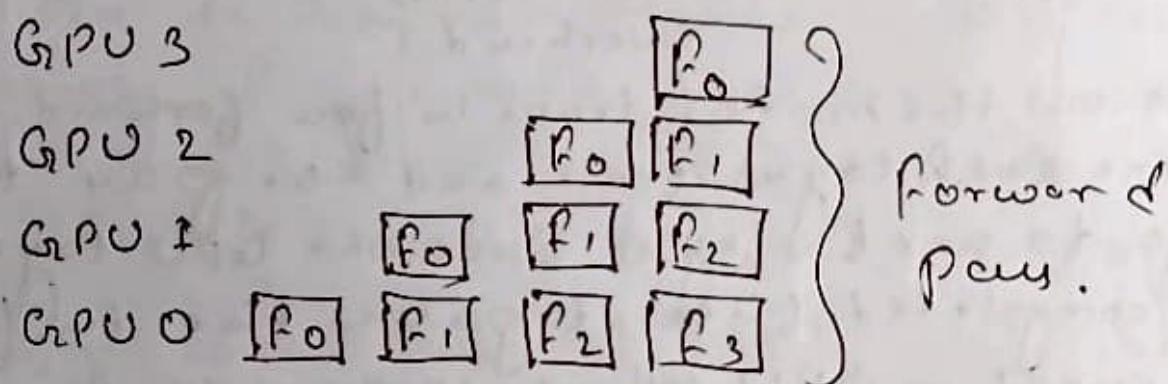 GPU 3 F0
GPU 2 F0 F1
GPU 1 F0 F1 F2
GPU 0 F0 F1 F2 F3
forward
Pass.